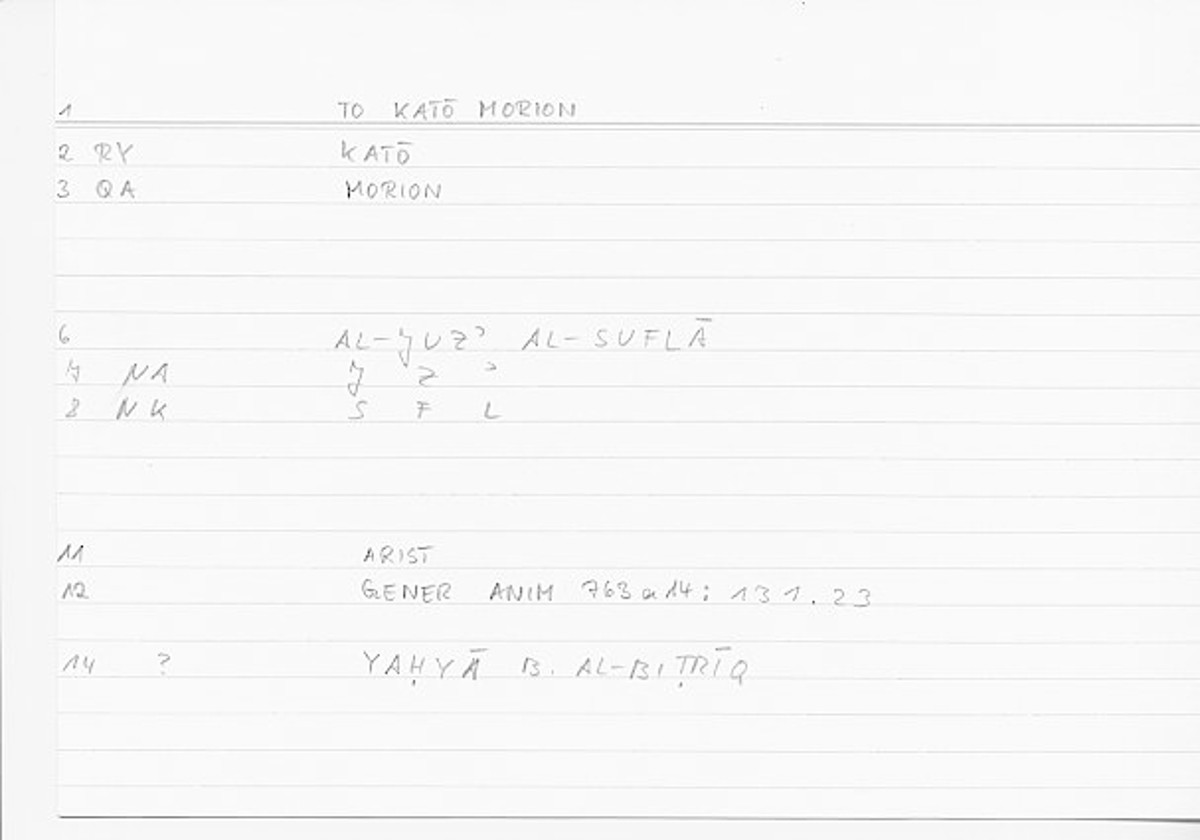 1 TO KATŌ MORION
2 RY KATŌ
3 QA MORION
6 AL-JUZʾ AL-SUFLĀ
7 NA J Z ʾ
8 NK S F L
11 ARIST
12 GENER ANIM 763a14: 131.23
14 ? YAḤYĀ B. AL-BIṬRĪQ